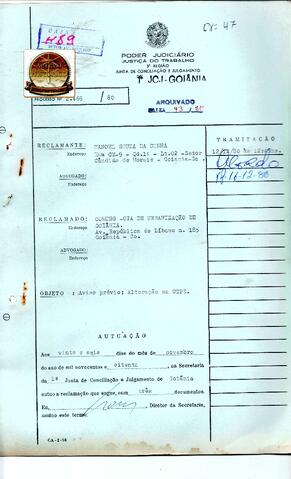 CAIXA
PODER JUDICIÁRIO
JUSTIÇA DO TRABALHO
3ª REGIÃO
JUNTA DE CONCILIAÇÃO E JULGAMENTO
1ª JCJ-GOIÂNIA
PROCESSO Nº / 80
ARQUIVADO
CAIXA 93 /
TRAMITAÇÃO
RECLAMANTE: MANOEL SOUZA DA CUNHA
Endereço Rua CM-9 - Qd.14 - Lt.02 -Setor
Cândido de Morais - Goiânia-Go.
ADVOGADO:
Endereço
RECLAMADO: COMURG -CIA DE URBANIZAÇÃO DE
Endereço GOIÂNIA.
Av. República do Líbano n. 185
Goiânia - Go.
ADVOGADO:
Endereço
OBJETO : Aviso prévio; Alteração na CTPS.
AUTUAÇÃO
Aos vinte e seis dias do mês de novembro
do ano de mil novecentos e oitenta , na Secretaria
da 1ª Junta de Conciliação e Julgamento de Goiânia
autuo a reclamação que segue, com três documentos.
Eu, , Diretor da Secretaria,
assino este termo.